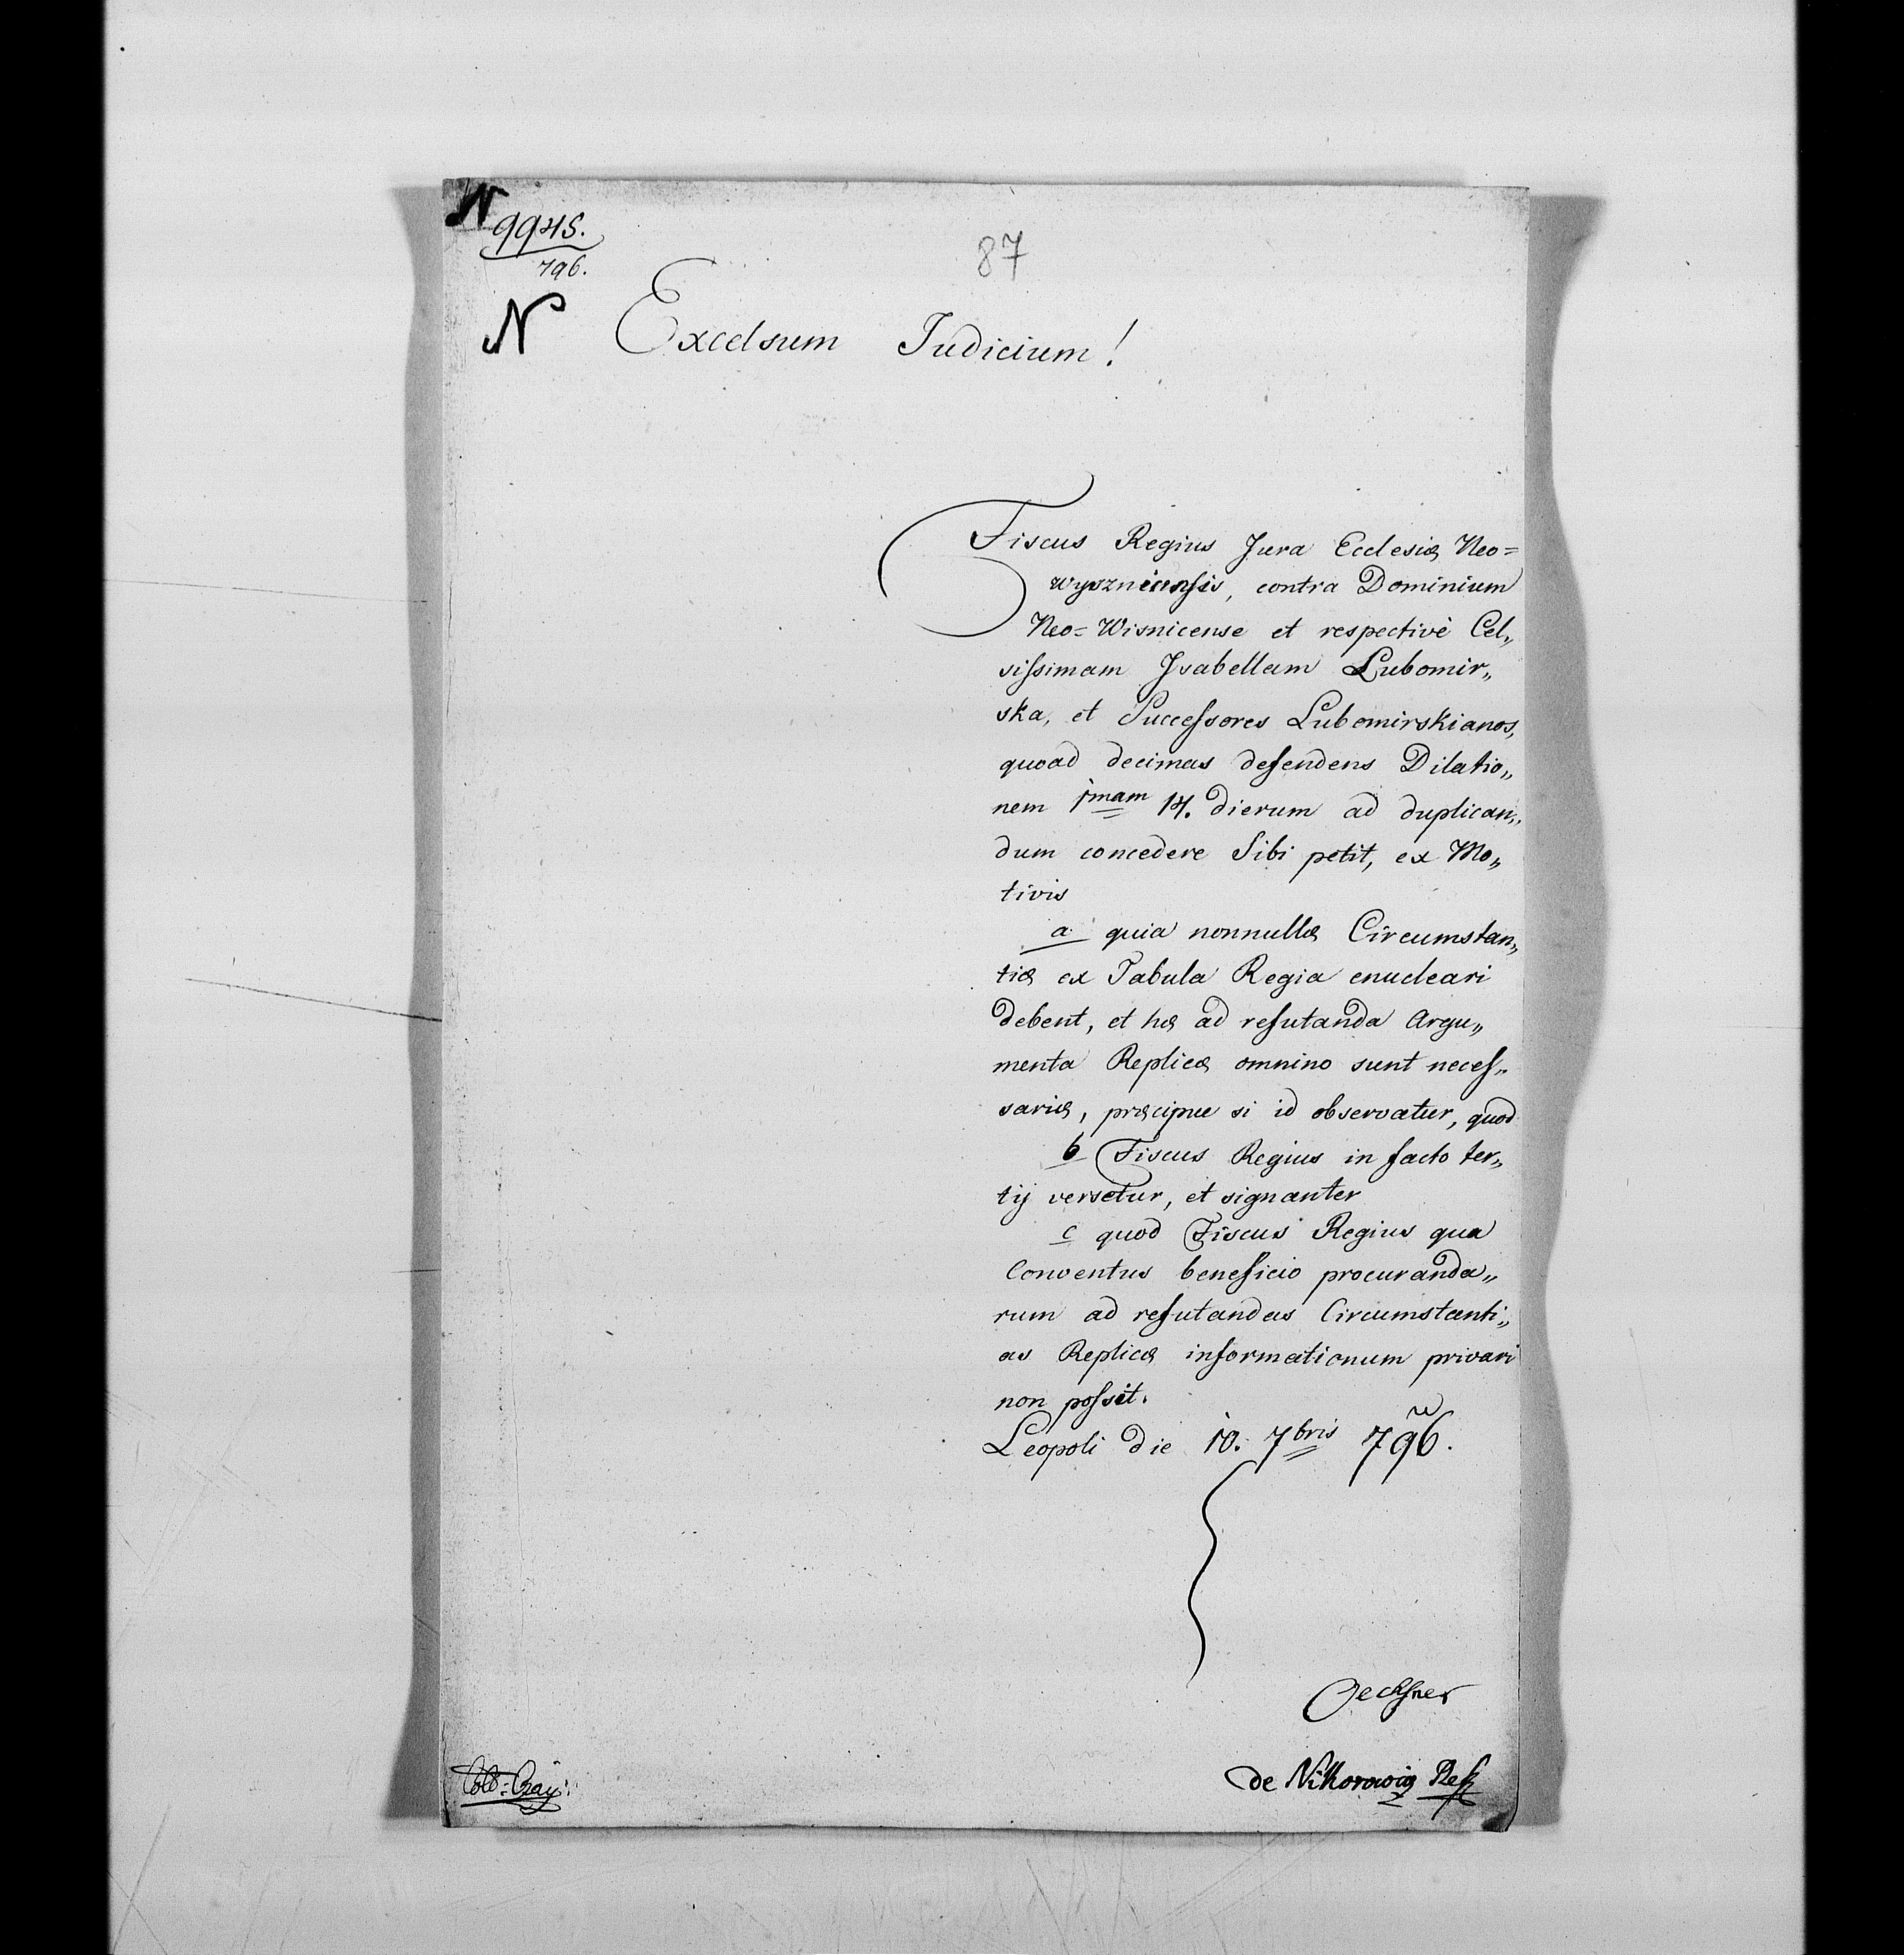 N
9945.
796.
87
N Excelsum Judicium!
Fiscus Regius Jura Ecclesiæ Neo=
wyszniciensis, contra Dominium
Neo=Wisnicense et respectivè Cel„
sissimam Ysabellam Lubomir„
ska, et Successores Lubomirskianos,
quoad decimas defendens Dilatio„
nem 1mam 14. dierum ad duplican„
dum concedere Sibi petit, ex Mo„
tivis
a quia nonnullæ Circumstan„
tiæ ex Tabula Regia enucleari
debent, et hæ ad refutanda Argu„
menta Replicæ omnino sunt neces„
sariæ, præcipue si id observatur, quod
b Fiscus Regius in facto ter„
tij versetur, et signanter
c quod Fiscus Regius qua
Conventus beneficio procuranda„
rum ad refutandas Circumstanti„
as Replicæ informationum privari
non possit.
Leopoli die 10. 7bris 796.
Oechsner
de Nikorowicz